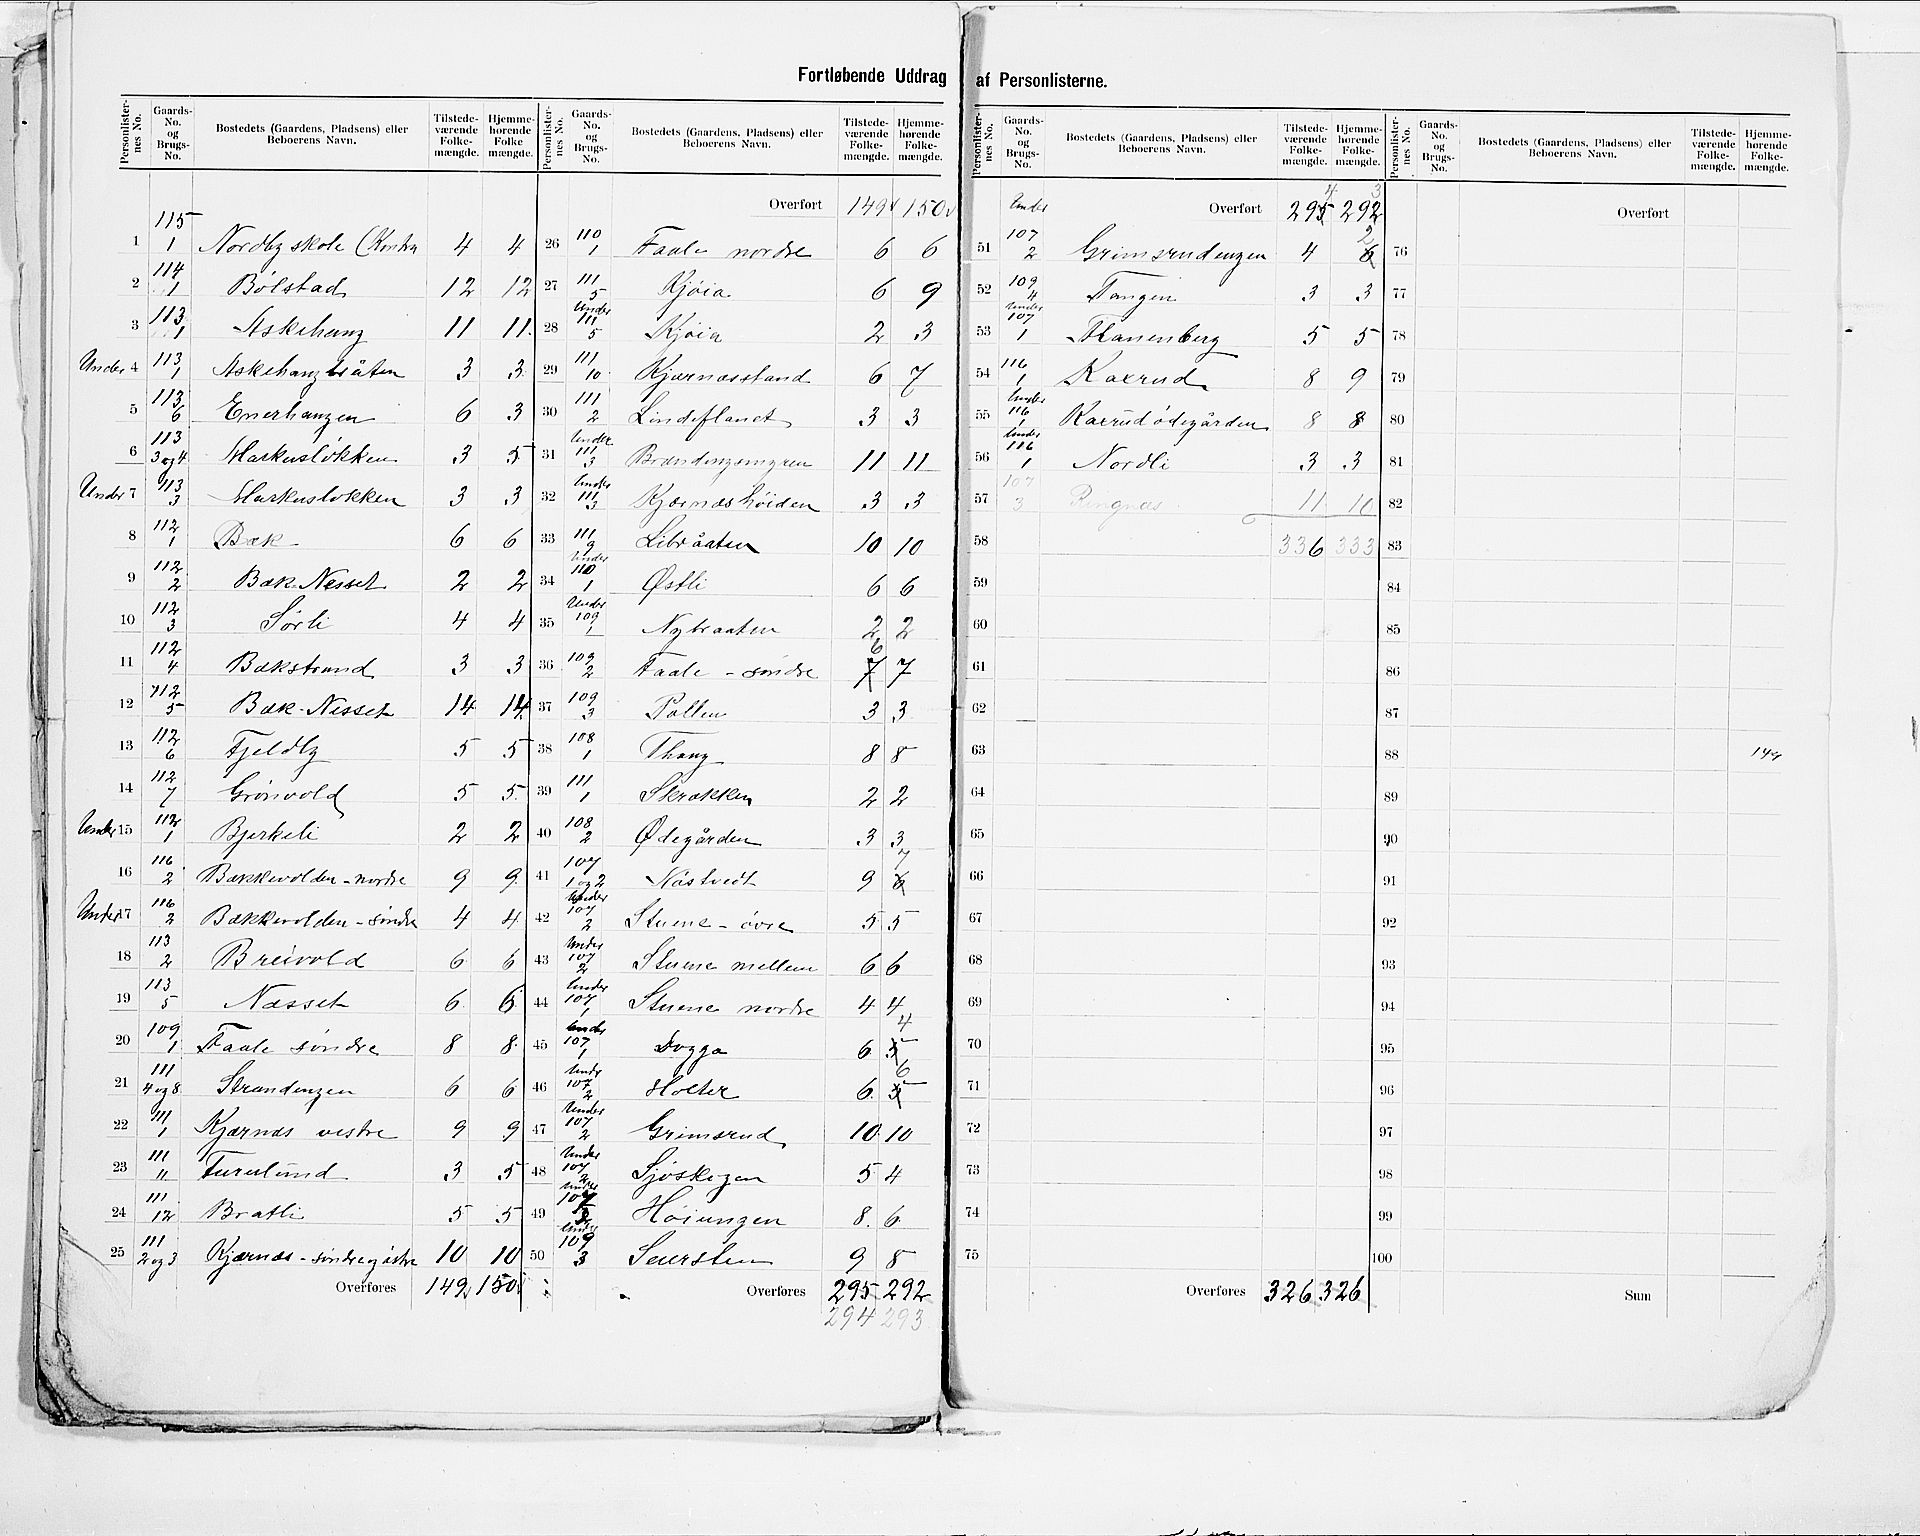 Fortløbende Uddrag af Personlisterne.
Personlisternes No. Gaards-No. og Brugs-No. Bostedets (Gaardens, Pladsens) eller Beboerens Navn. Tilstedeværende Folkemængde. Hjemmehørende Folkemængde.
1 115/1 Nordby skole (Kontra 4 4
2 114/1 Bölstad 12 12
3 113/1 Askehaug 11 11
Under 4 113/1 Askehaugbråten 3 3
5 113/6 Enerhaugen 6 3
6 113/3 og 4 Markusløkken 3 5
Under 7 113/3 Markusløkken 3 3
8 112/1 Bæk 6 6
9 112/2 Bæk-Nesset 2 2
10 112/3 Sørli 4 4
11 112/4 Bækstrand 3 3
12 112/5 Bæk-Nesset 14 14
13 112/6 Fjeldby 5 5
14 112/7 Grönvold 5 5
Under 15 112/1 Bjerkeli 2 2
16 116/2 Bækkevolden-nordre 9 9
Under 17 116/2 Bækkevolden-søndre 4 4
18 113/2 Breivold 6 6
19 113/5 Næsset 6 6
20 109/1 Faale söndre 8 8
21 111/4 og 8 Strandengen 6 6
22 111/1 Kjærnæs vestre 9 9
23 111/11 Furulund 3 5
24 111/12 Bratli 5 5
25 111/2 og 3 Kjærnæs-söndre og östre 10 10
Overføres 149 150
Personlisternes No. Gaards-No. og Brugs-No. Bostedets (Gaardens, Pladsens) eller Beboerens Navn. Tilstedeværende Folkemængde. Hjemmehørende Folkemængde.
Overført 149 150
26 110/1 Faale nordre 6 6
27 111/5 Kjöia 6 9
28 Under 111/5 Kjöia 2 3
29 111/10 Kjærnæsstrand 6 7
30 111/2 Lindeflanet 3 3
31 Under 111/3 Brændingsmyren 11 11
32 Under 111/3 Kjærnæshöiden 3 3
33 111/9 Libråaten 10 10
34 Under 110/1 Østli 6 6
35 Under 109/1 Nybraaten 2 2
36 109/2 Faale-söndre 7 6 7
37 109/3 Pollen 3 3
38 108/1 Thaug 8 8
39 111/1 Skrækken 2 2
40 108/2 Ødegården 3 3
41 107/1 og 2 Nöstvedt 9 6 7
42 Under 107/2 Stuene-övre 5 5
43 Under 107/2 Stuene mellem 6 6
44 Under 107/1 Stuene nordre 4 4
45 Under 107/1 Dogga 6 5 4
46 Under 107/2 Holter 6 5 6
47 Under 107/2 Grimsrud 10 10
48 Under 107/2 Sjöskogen 5 4
49 Under 107 Höiungen 8 6
50 Under 109/3 Seiersten 9 8
Overføres 295 292
294 293
Personlisternes No. Gaards-No. og Brugs-No. Bostedets (Gaardens, Pladsens) eller Beboerens Navn. Tilstedeværende Folkemængde. Hjemmehørende Folkemængde.
Overført 295 4 292 3
51 Under 107/2 Grimsrudengen 4 6 2
52 109/4 Tangen 3 3
53 Under 107/1 Flanenberg 5 5
54 116/1 Kaxrud 8 9
55 Under 116/1 Kaxrudödegården 8 8
56 Under 116/1 Nordli 3 3
57 107/3 Ringnæs 11 10
58 336 333
59
60
61
62
63
64
65
66
67
68
69
70
71
72
73
74
75
Overføres 326 326
Personlisternes No. Gaards-No. og Brugs-No. Bostedets (Gaardens, Pladsens) eller Beboerens Navn. Tilstedeværende Folkemængde. Hjemmehørende Folkemængde.
Overført
76
77
78
79
80
81
82
83
84
85
86
87
88
89
90
91
92
93
94
95
96
97
98
99
100
Sum